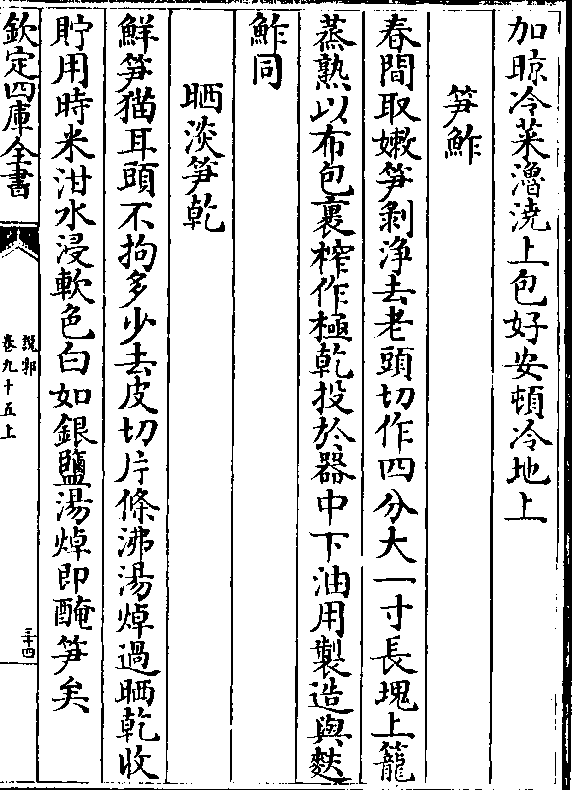 加晾冷菜滷澆上包好安頓冷地上
笋鮓
春間取嫩笋剝浄去老頭切作四分大一寸長塊上籠
蒸熟以布包裹榨作極乾投於器中下油用製造與麩
鮓同
晒淡笋乾
鮮笋猫耳頭不拘多少去皮切片條沸湯焯過晒乾收
貯用時米泔水浸軟色白如銀鹽湯焯即醃笋矣
欽定四庫全書
説郛
卷九十五上
三十四